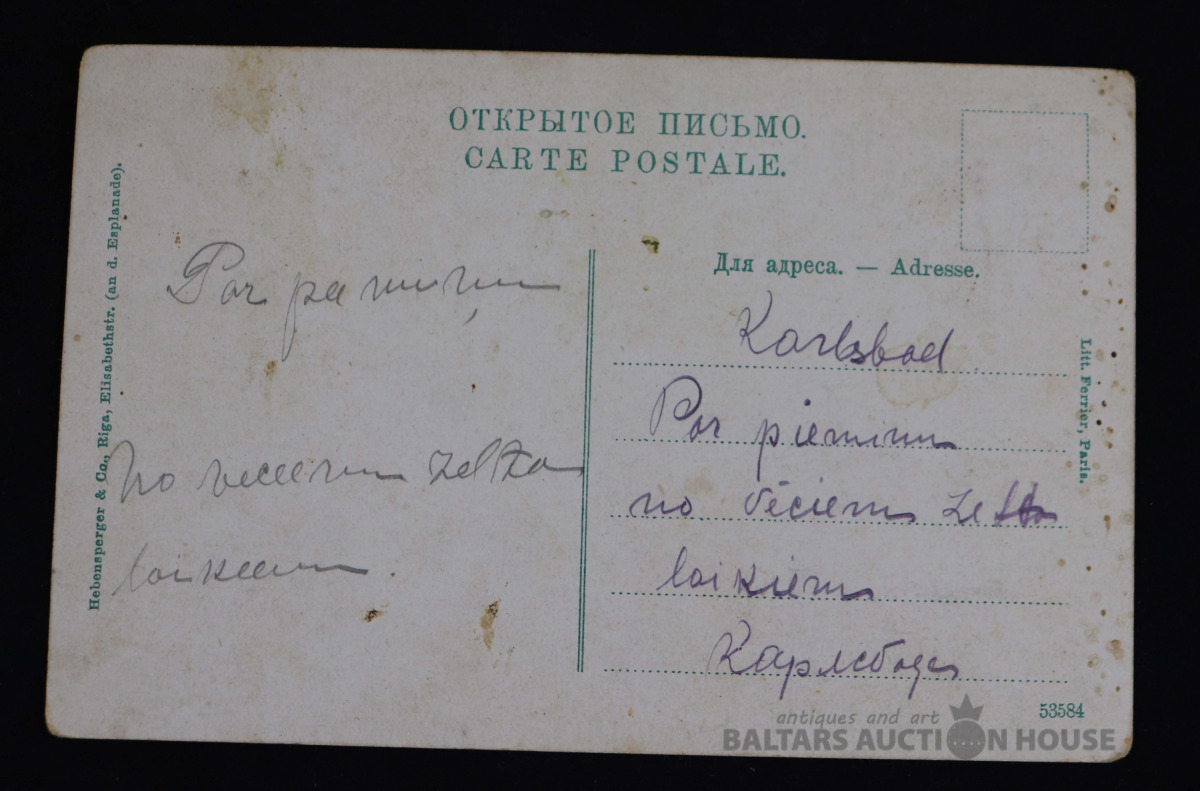 ОТКРЫТОЕ ПИСЬМО.
CARTE POSTALE.
Hebensperger & Co., Riga, Elisabethstr. (an d. Esplanade).
Par pa
no zelta
laikeem.
Для адреса. — Adresse.
Karlsbad
Par piemiņu
no vēciem zelta
laikiem
Карлсбад
Litt. Ferrier, Paris.
53584
antiques and art
BALTARS AUCTION HOUSE